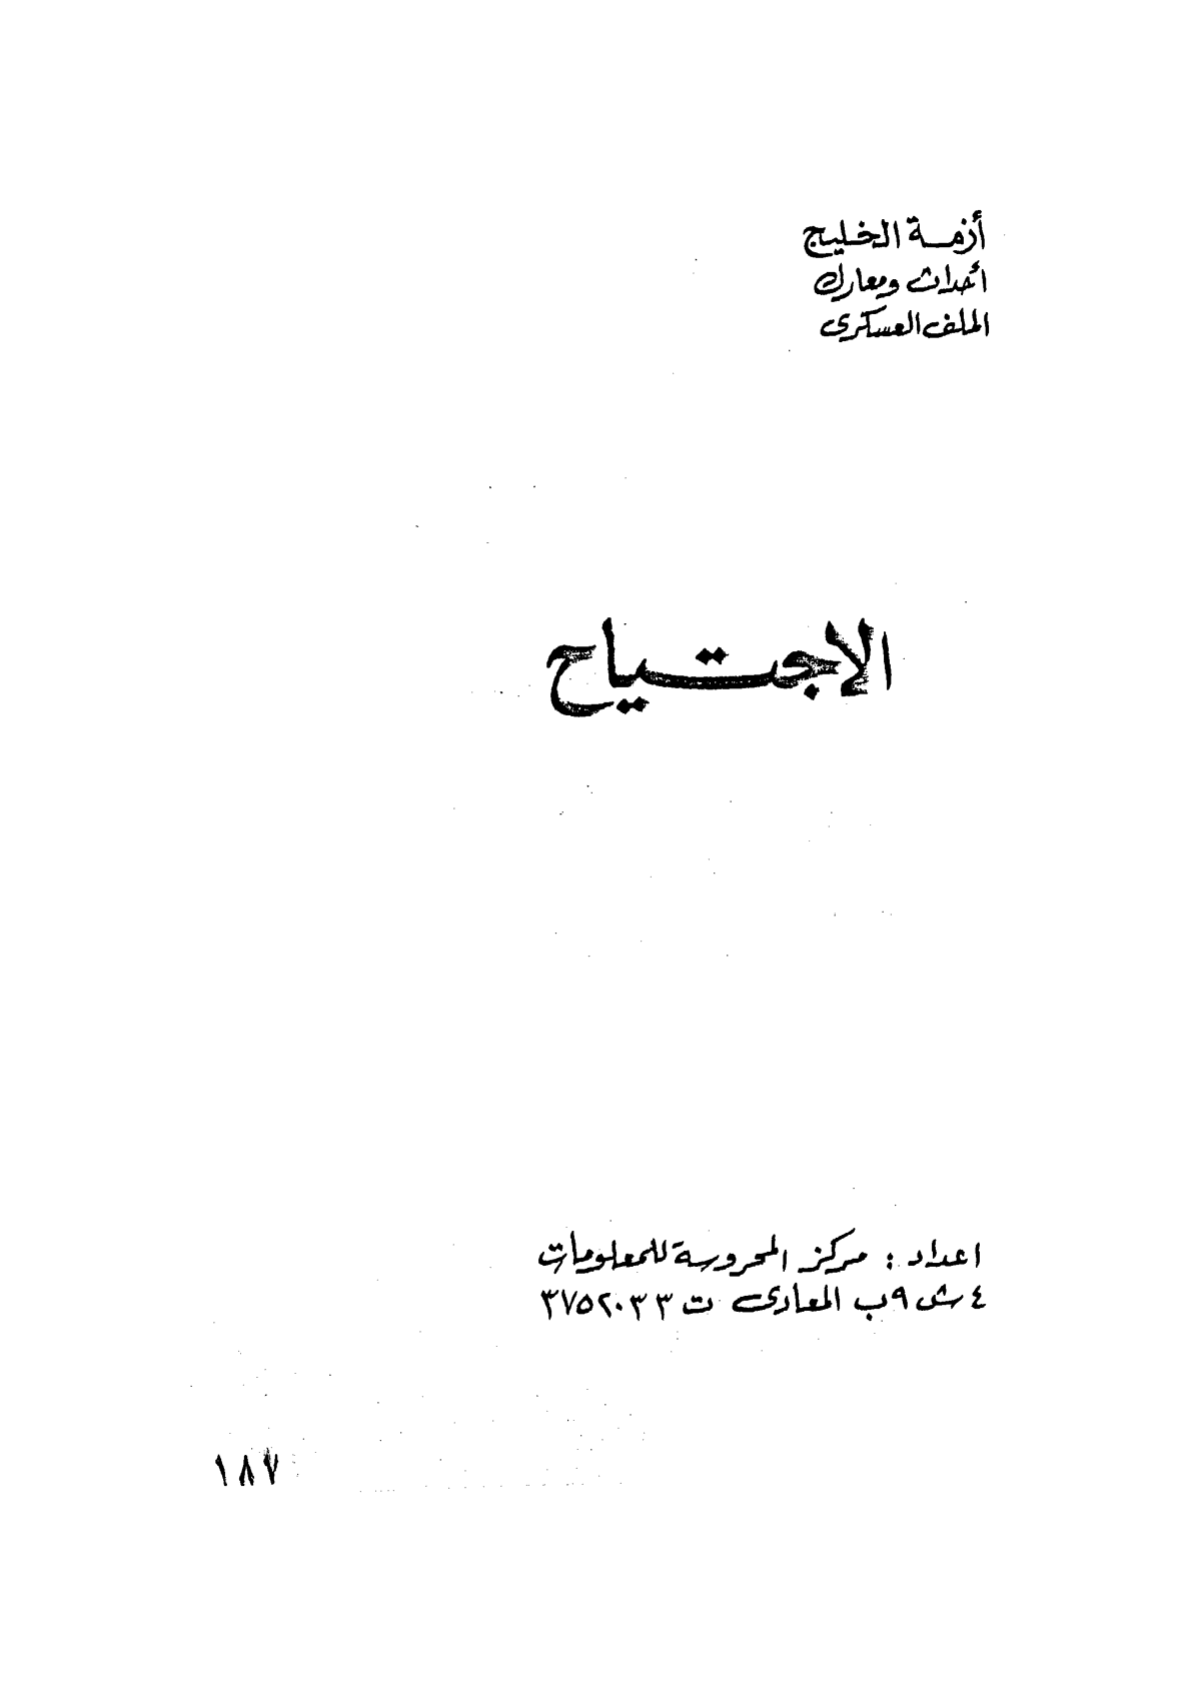 أزمة الخليج
أحداث ومعارك
الملف العسكرى
الاجتياح
اعداد : مركز المحروسة للمعلومات
٤ ش ٩ب المعادى ت ٣٧٥٢٠٣٣
١٨٧